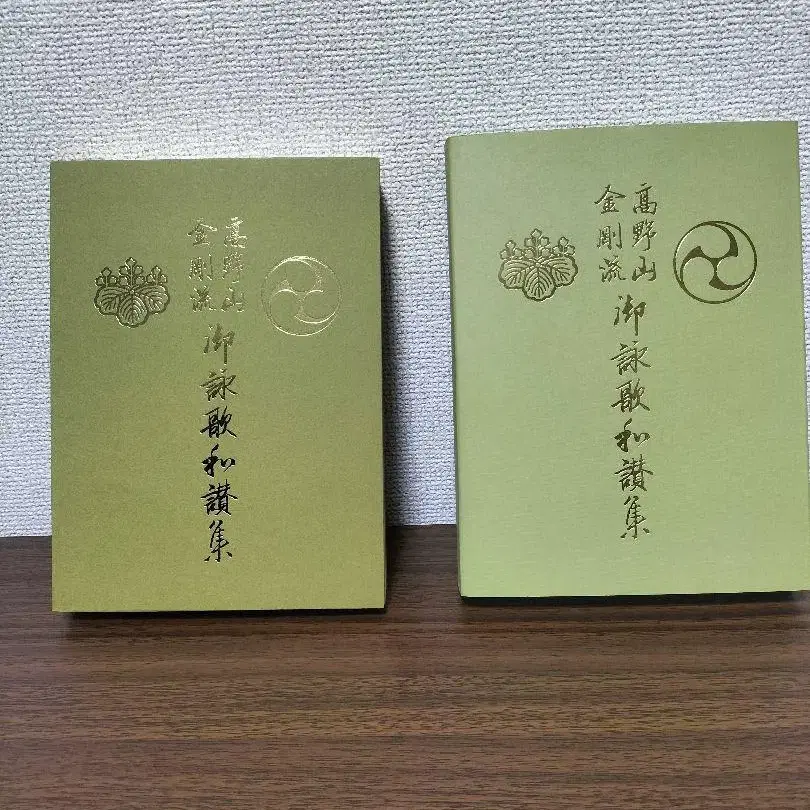 高野山
金剛流
御詠歌和讃集
高野山
金剛流
御詠歌和讃集